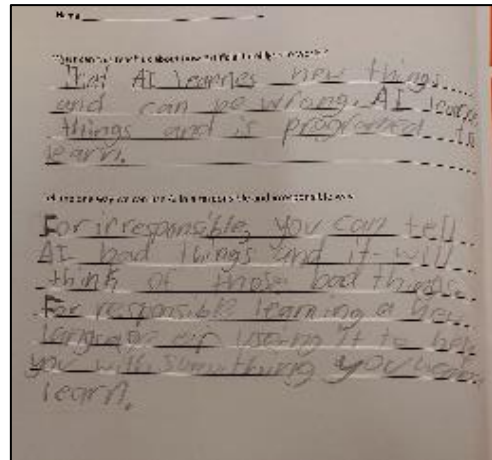 Name
That AI learnes new things
and can be wrong. AI learns
things and is programed to
learn.
For irresponsible, you can tell
AI bad things and it will
think of those bad things.
For responsible learning a new
language or using it to help
you with something you
learn.